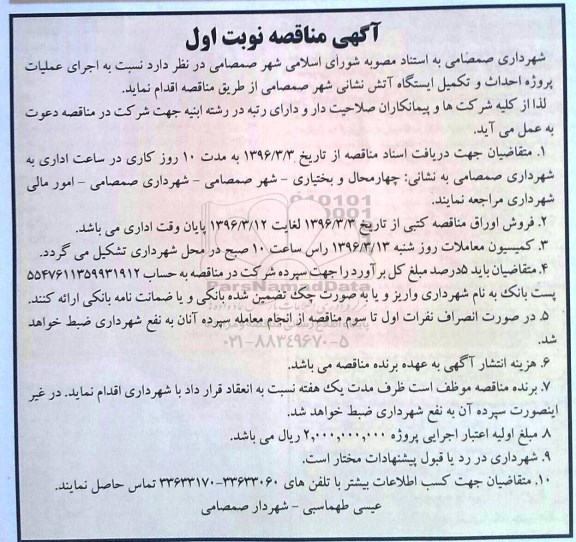 آگهی مناقصه نوبت اول
شهرداری صمصامی به استناد مصوبه شورای اسلامی شهر صمصامی در نظر دارد نسبت به اجرای عملیات
پروژه احداث و تکمیل ایستگاه آتش نشانی شهر صمصامی از طریق مناقصه اقدام نماید.
لذا از کلیه شرکت ها و پیمانکاران صلاحیت دار و دارای رتبه در رشته ابنیه جهت شرکت در مناقصه دعوت
به عمل می آید.
۱. متقاضیان جهت دریافت اسناد مناقصه از تاریخ ۱۳۹۶/۳/۳ به مدت ۱۰ روز کاری در ساعت اداری به
شهرداری صمصامی به نشانی: چهارمحال و بختیاری - شهر صمصامی - شهرداری صمصامی - امور مالی
شهرداری مراجعه نمایند.
۲. فروش اوراق مناقصه کتبی از تاریخ ۱۳۹۶/۳/۳ لغایت ۱۳۹۶/۳/۱۲ پایان وقت اداری می باشد.
۳. کمیسیون معاملات روز شنبه ۱۳۹۶/۳/۱۳ راس ساعت ۱۰ صبح در محل شهرداری تشکیل می گردد.
ParsNamadData
۴. متقاضیان باید ۵درصد مبلغ کل برآورد را جهت سپرده شرکت در مناقصه به حساب ۵۵۴۷۶۱۱۳۵۹۹۳۱۹۱۲
پست بانک به نام شهرداری واریز و یا به صورت چک تضمین شده بانکی و یا ضمانت نامه بانکی ارائه کنند.
۵. در صورت انصراف نفرات اول تا سوم مناقصه از انجام معامله سپرده آنان به نفع شهرداری ضبط خواهد
شد.
۰۲۱-۸۸۳۴۹۶۷۰-۵
۶. هزینه انتشار آگهی به عهده برنده مناقصه می باشد.
۷. برنده مناقصه موظف است ظرف مدت یک هفته نسبت به انعقاد قرار داد با شهرداری اقدام نماید. در غیر
اینصورت سپرده آن به نفع شهرداری ضبط خواهد شد.
۸. مبلغ اولیه اعتبار اجرایی پروژه ۲,۰۰۰,۰۰۰,۰۰۰ ریال می باشد.
۹. شهرداری در رد یا قبول پیشنهادات مختار است.
۱۰. متقاضیان جهت کسب اطلاعات بیشتر با تلفن های ۳۳۶۳۳۰۶۰-۳۳۶۳۳۱۷۰ تماس حاصل نمایند.
عیسی طهماسبی - شهردار صمصامی